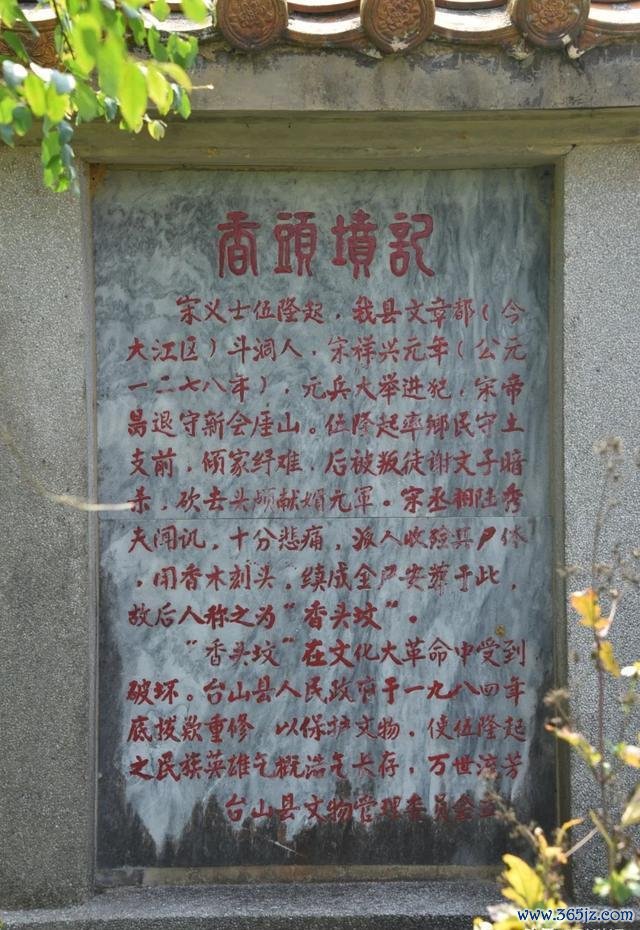 香頭墳記
宋义士伍隆起，我县文章都（今
大江区）斗洞人，宋祥兴元年（公元
一二七八年），元兵大举进犯，宋帝
昺退守新会厓山。伍隆起率鄉民守土
支前，倾家纾难，后被叛徒谢文子暗
杀，砍去头颅献媚元軍。宋丞相陆秀
夫闻讯，十分悲痛，派人收殓其尸体
，用香木刻头，续成全尸安葬于此，
故后人称之为“香头坟”。
“香头坟”在文化大革命中受到
破坏。台山县人民政府于一九八四年
底拨款重修 以保护文物，使伍隆起
之民族英雄气概浩气长存，万世流芳
台山县文物管理委员会立
www.365jz.com